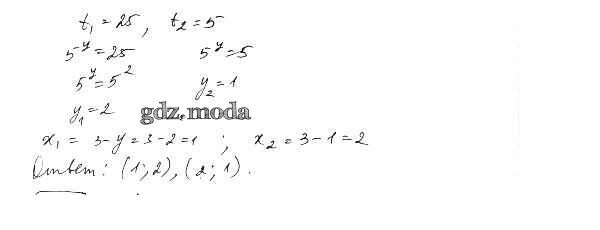 t₁ = 25, t₂ = 5
5^y = 25 5^y = 5
5^y = 5^2 y₂ = 1
y₁ = 2 gdz.moda
x₁ = 3 - y = 3 - 2 = 1 ; x₂ = 3 - 1 = 2
Ответ: (1; 2), (2; 1).